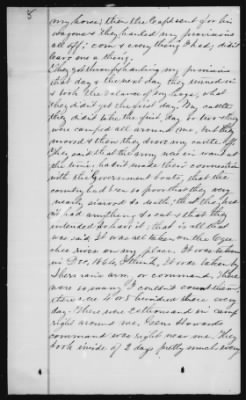 8
my house; then the Capt sent for his
wagons & they hauled my provisions
all off; corn & every thing I had; didn't
leave me a thing.
They got through hauling my provisions
that day & the next day they turned in
& took the balance of my hogs, what
they didn't get the first day. My cattle
they didn't take the first day or two - they
were camped all around me, but they
moved & then they drove my cattle off.
They said that the army was in want and
the time; hadn't made their connection
with the Government boats, that the
country had been so poor that they were
nearly starved to death; that they
had anything to eat & that they
intended to have it; that is all that
was said. It was all taken on the Ogee-
chee river on my place. It was taken
in Dec. 1864, I think. It was taken by
Sherman's army, or command; there
were so many I couldn't count them;
there were 4 or 5 hundred there every
day. There were a thousand in camp
right around me. Genl Howard's
command was right near me. They
took inside of 2 days pretty much every